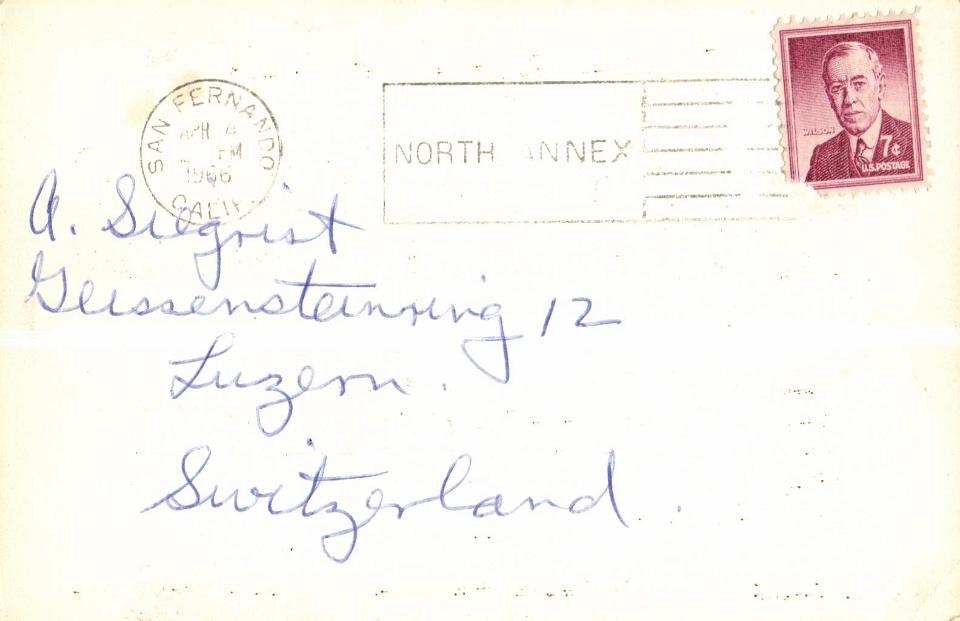 SAN FERNANDO
APR 4
PM
1966
CALIF
NORTH ANNEX
WILSON
7¢
U.S. POSTAGE
A. Siegrist
Geissensteinring 12
Luzern.
Switzerland.